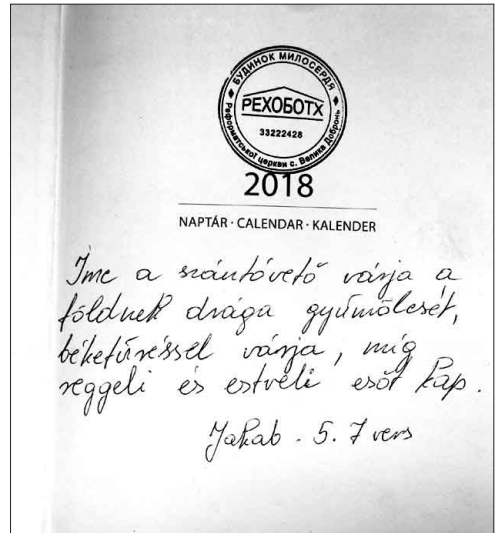 БУДИНОК МИЛОСЕРДЯ
РЕХОБОТХ
33222428
Реформатської церкви с. Велика Добронь
2018
NAPTÁR · CALENDAR · KALENDER
Íme a szántóvető várja a
földnek drága gyümölcsét,
béketűréssel várja, míg
reggeli és estveli esőt kap.
Jakab - 5. 7 vers